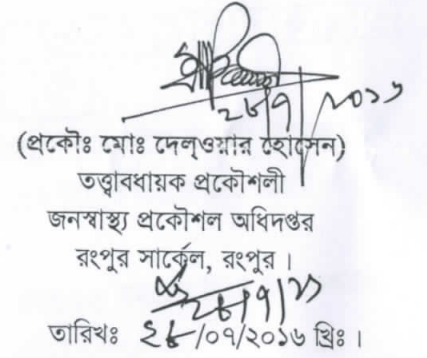 ২৮/৭/২০১৬
(প্রকৌঃ মোঃ দেলওয়ার হোসেন)
তত্ত্বাবধায়ক প্রকৌশলী
জনস্বাস্থ্য প্রকৌশল অধিদপ্তর
রংপুর সার্কেল, রংপুর ।
২৮/৭/১৬
তারিখঃ ২৮/০৭/২০১৬ খ্রিঃ ।